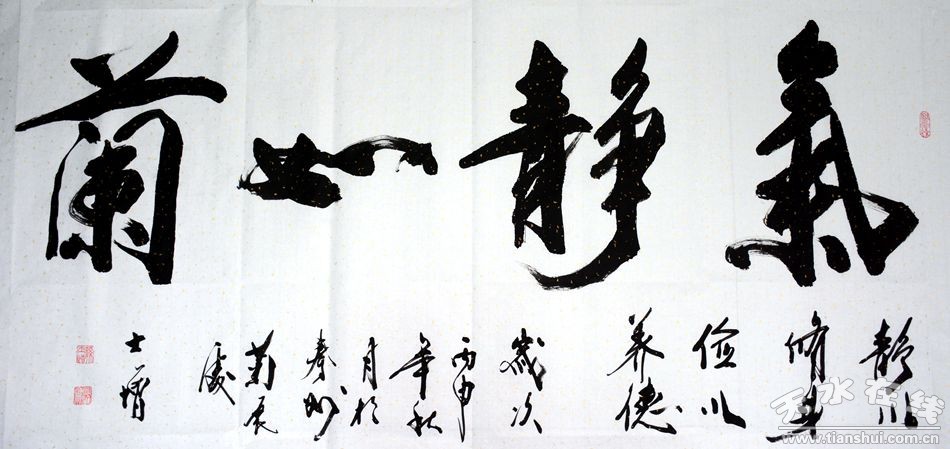 氣靜如蘭
靜以
修身
儉以
养德
歲次
丙申
年秋
月於
秦州
士增
天水在线
www.tianshui.com.cn